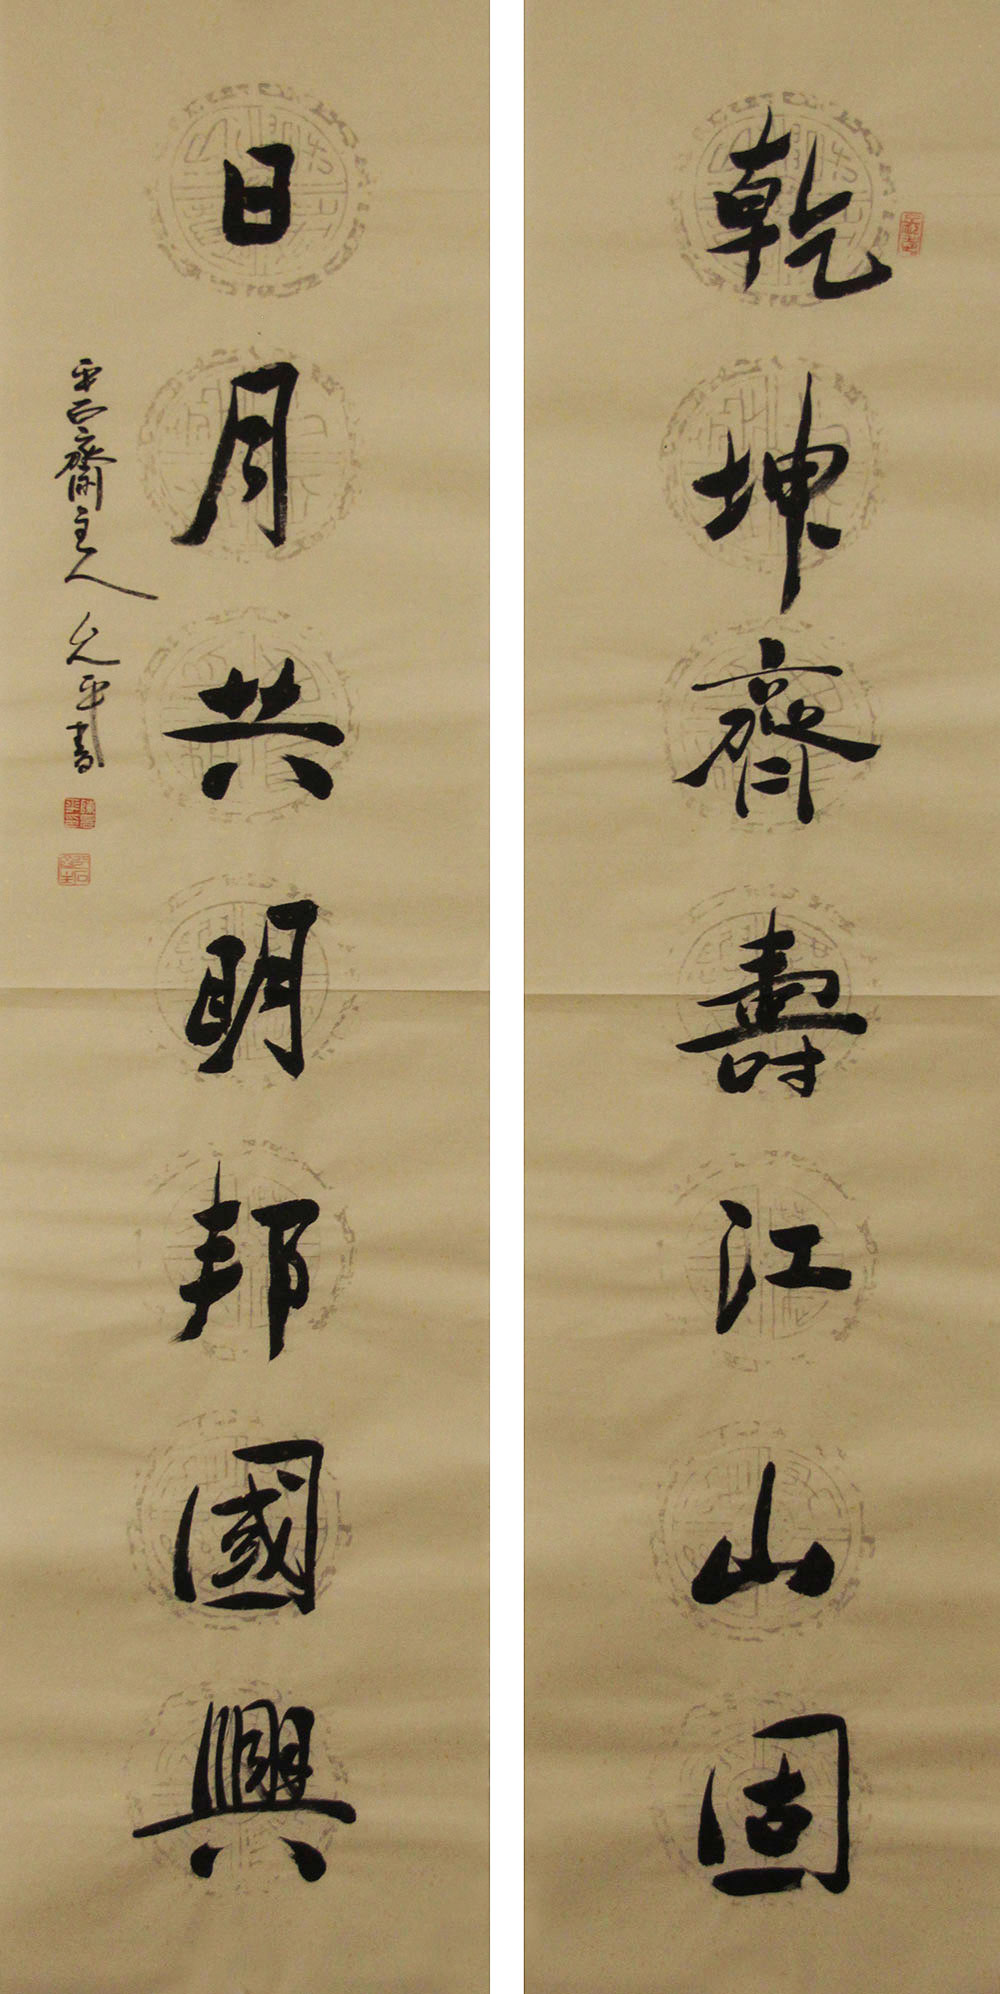 乾坤齊壽江山固
日月共明邦國興
平石齋主人允平書